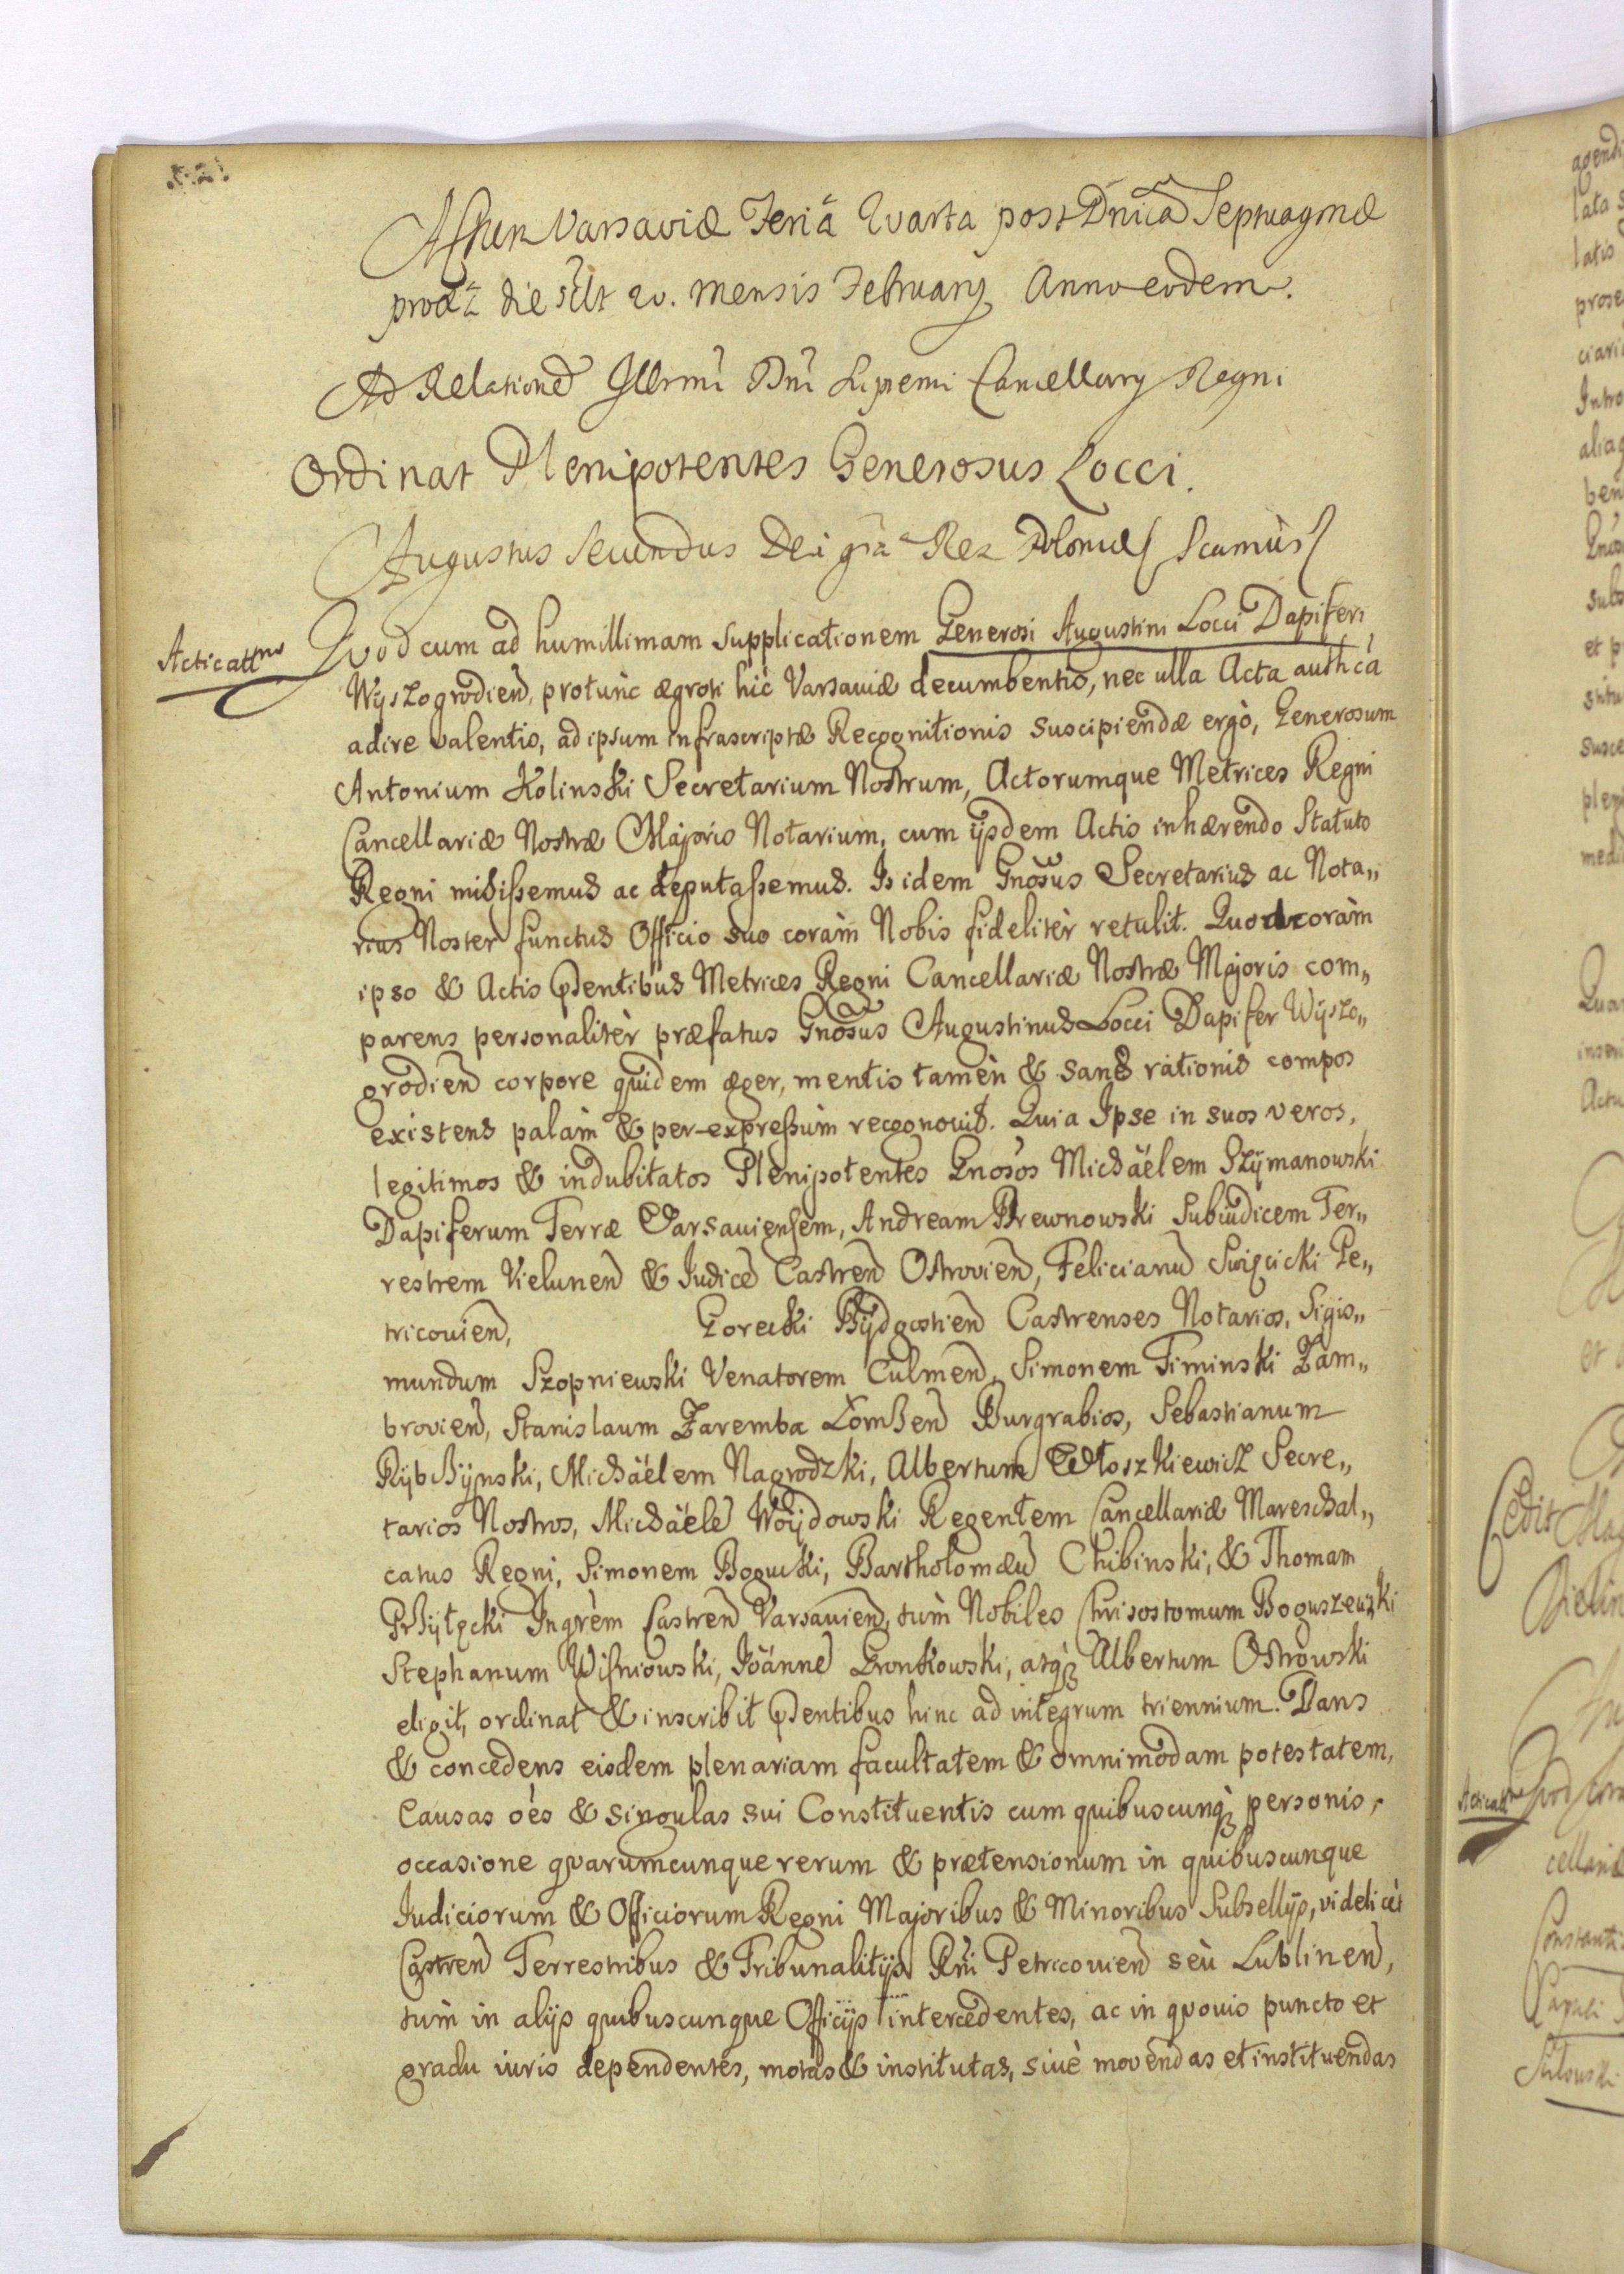 Actum Varsaviæ Feriâ Qvarta post Dnicã Septuagmæ
prox̃ã die sc̃ilt 20. mensis Februarij Anno eodem.
Ad Relationẽ Illrmi Dni Supremi Cancellarij Regni
Ordinat Plenipotentes Generosus Locci.
Augustus Secundus Dei grã Rex Poloniæ Scamùs
Acticattno
Qvod cum ad humillimam supplicationem Generosi Augustini Locci Dapiferi
Wyszogrodień, protunc ægroti hic Varsaviæ decumbentis, nec ulla Acta authca
adire valentis, ad ipsum infrascriptæ Recognitionis suscipiendæ ergò, Generosum
Antonium Kolinski Secretarium Nostrum, Actorumque Metrices Regni
Cancellariæ Nostræ Majoris Notarium, cum ijsdem Actis inhærendo Statuto
Regni misissemus ac deputassemus. Is idem Gnosus Secretarius ac Nota„
rius Noster functus Officio suo coràm Nobis fidelitèr retulit. Quod coràm
ipso & Actis pñtibus Metrices Regni Cancellariæ Nostræ Majoris com„
parens personalitèr præfatus Gnosus Augustinus Locci Dapifer Wyszo„
grodień corpore quidem æger, mentis tamèn & sanæ rationis compos
existens palàm & per-expressùm recognovit. Quia Ipse in suos veros,
legitimos & indubitatos Plenipotentes Gnosos Michäëlem Szÿmanowski
Dapiferum Terræ Varsaviensem, Andream Brewnowski Subiudicem Ter„
restrem Vielunen & Iudicẽ Castren Ostrovien, Felicianũ Swięcicki Pe„
tricovien, Gorecki Bÿdgostien Castrenses Notarios, Sigis„
mundum Szopniewski Venatorem Culmen, Simonem Timinski Zam„
brovien, Stanislaum Zaremba Lomzen Burgrabios, Sebastianum
Rÿbczÿnski, Michäëlem Nagrodzki, Albertum Włoszkiewicz Secre„
tarios Nostros, Michäëlẽ Woÿdowski Regentem Cancellariæ Mareschal„
catus Regni, Simonem Bogucki, Bartholomæũ Chibinski, & Thomam
Przÿłęcki Ingrèm Castren Varsavien, tùm Nobiles Chrisostomum Boguszewski
Stephanum Wisniowski, Joännẽ Gronkowski, atq; Albertum Ostrowski
eligit, ordinat & inscribit pñtibus hinc ad integrum triennium. Dans
& concedens eisdem plenariam facultatem & omnimodam potestatem,
Causas oẽs & singulas sui Constituentis cum quibuscunq; personis,
occasione qvarumcunque rerum & prætensionum in quibuscunque
Iudiciorum & Officiorum Regni Majoribus & Minoribus Subsellijs, videlicèt
Castren Terrestribus & Tribunalitijs Rni Petricovien seù Lublinen,
tùm in alijs quibuscunque Officijs intercedentes, ac in qvovis puncto et
gradu iuris dependentes, motas & institutas, sivè movendas et instituendas